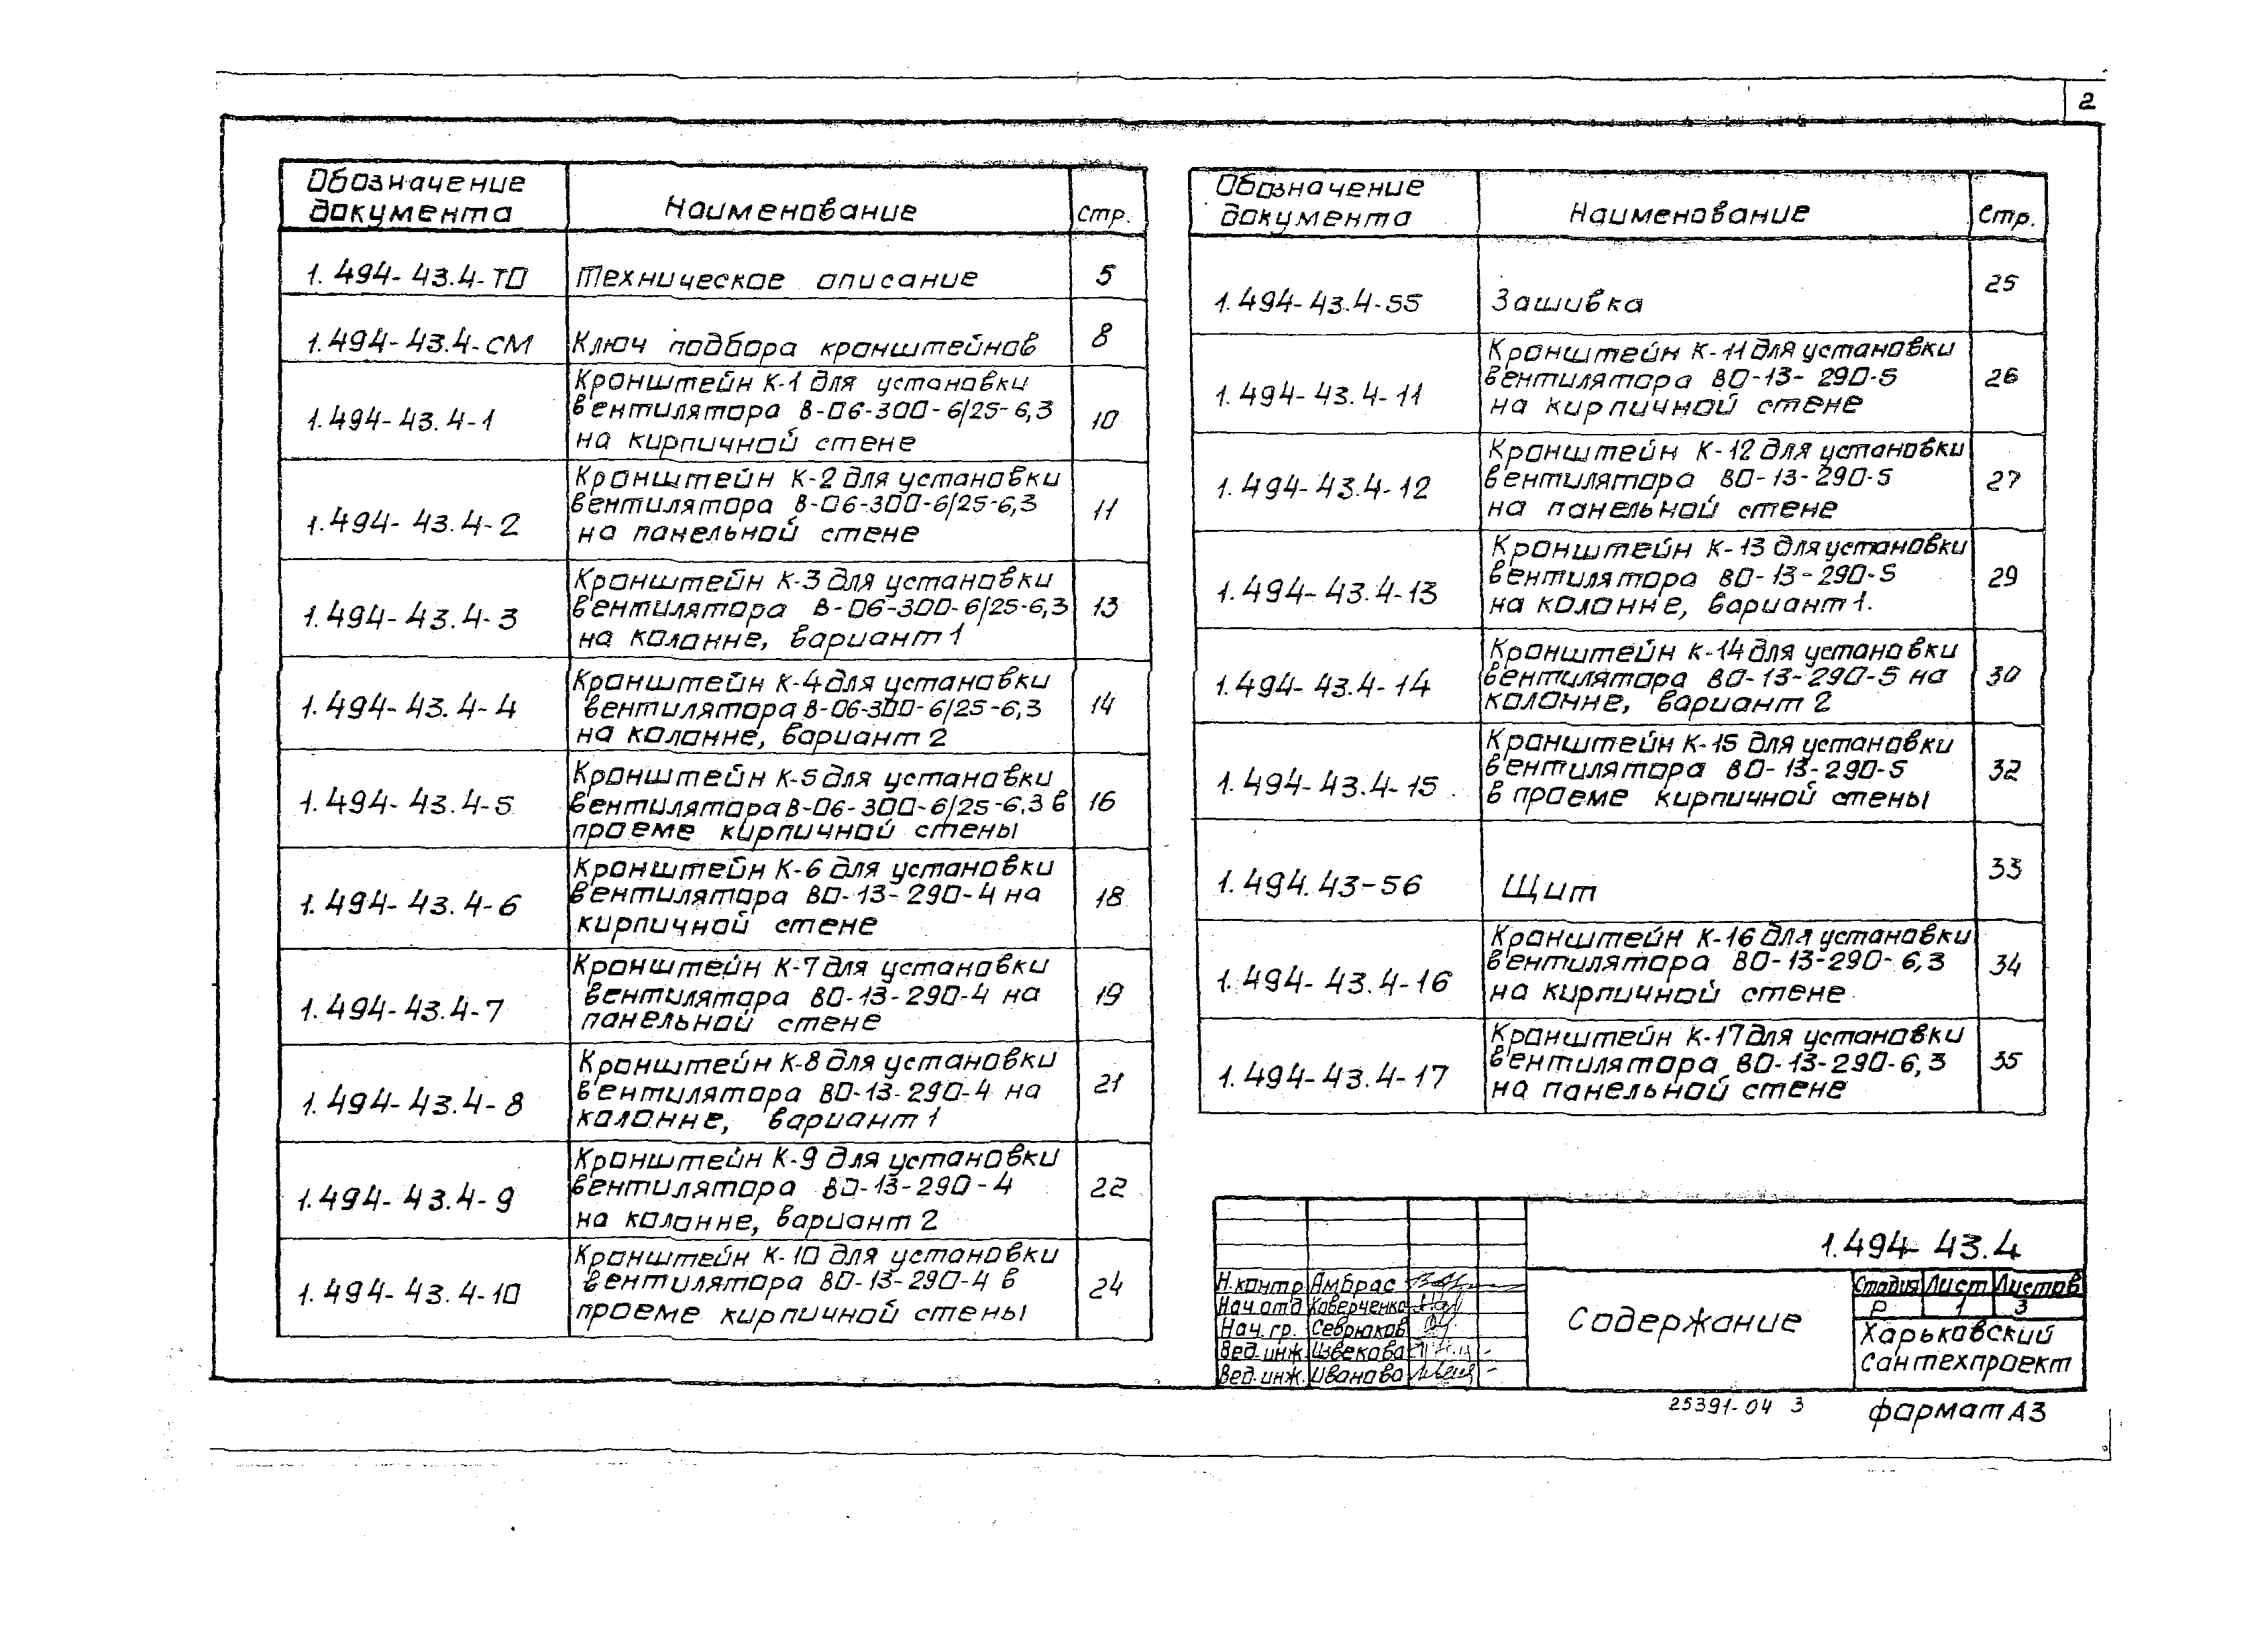 2
Обозначение
документа
Наименование
стр.
1.494-43.4-ТО
Техническое описание
5
1.494-43.4-СМ
Ключ подбора кронштейнов
8
1.494-43.4-1
Кронштейн К-1 для установки
вентилятора В-06-300-6/25-6,3
на кирпичной стене
10
1.494-43.4-2
Кронштейн К-2 для установки
вентилятора В-06-300-6/25-6,3
на панельной стене
11
1.494-43.4-3
Кронштейн К-3 для установки
вентилятора В-06-300-6/25-6,3
на колонне, вариант 1
13
1.494-43.4-4
Кронштейн К-4 для установки
вентилятора В-06-300-6/25-6,3
на колонне, вариант 2
14
1.494-43.4-5
Кронштейн К-5 для установки
вентилятора В-06-300-6/25-6,3 в
проеме кирпичной стены
16
1.494-43.4-6
Кронштейн К-6 для установки
вентилятора ВО-13-290-4 на
кирпичной стене
18
1.494-43.4-7
Кронштейн К-7 для установки
вентилятора ВО-13-290-4 на
панельной стене
19
1.494-43.4-8
Кронштейн К-8 для установки
вентилятора ВО-13-290-4 на
колонне, вариант 1
21
1.494-43.4-9
Кронштейн К-9 для установки
вентилятора ВО-13-290-4
на колонне, вариант 2
22
1.494-43.4-10
Кронштейн К-10 для установки
вентилятора ВО-13-290-4 в
проеме кирпичной стены
24
Обозначение
документа
Наименование
Стр.
1.494-43.4-55
Зашивка
25
1.494-43.4-11
Кронштейн К-11 для установки
вентилятора ВО-13-290-5
на кирпичной стене
26
1.494-43.4-12
Кронштейн К-12 для установки
вентилятора ВО-13-290-5
на панельной стене
27
1.494-43.4-13
Кронштейн К-13 для установки
вентилятора ВО-13-290-5
на колонне, вариант 1.
29
1.494-43.4-14
Кронштейн К-14 для установки
вентилятора ВО-13-290-5 на
колонне, вариант 2
30
1.494-43.4-15
Кронштейн К-15 для установки
вентилятора ВО-13-290-5
в проеме кирпичной стены
32
1.494.43-56
Щит
33
1.494-43.4-16
Кронштейн К-16 для установки
вентилятора ВО-13-290-6,3
на кирпичной стене
34
1.494-43.4-17
Кронштейн К-17 для установки
вентилятора ВО-13-290-6,3
на панельной стене
35
1.494-43.4
Н.контр Амбрас
Нач.отд Каверченко
Нач.гр. Севрюков
Вед.инж. Извекова
Вед.инж. Иванова
Содержание
Стадия Лист Листов
Р 1 3
Харьковский
сантехпроект
25391-04 3
формат А3